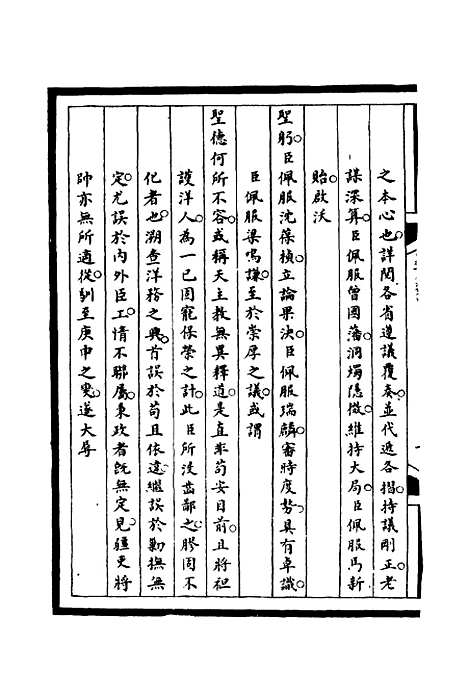 之本心也詳閱各省遵議覆奏並代遞各摺持議剛正老
謀深算臣佩服曾國藩洞燭隱微維持大局臣佩服馬新
貽啟沃
聖躬臣佩服沈葆楨立論果決臣佩服瑞麟審時度勢具有卓識
臣佩服梁鳴謙至於崇厚之議或謂
聖德何所不容或稱天主教無異釋道是直苟安目前且將袒
護洋人為一己固寵保榮之計此臣所沒齒鄙之膠固不
化者也溯查洋務之興首誤於苟且依違繼誤於勦撫無
定尤誤於內外臣工情不聯屬秉政者既無定見疆吏將
帥亦無所適從馴至庚申之變遂大辱